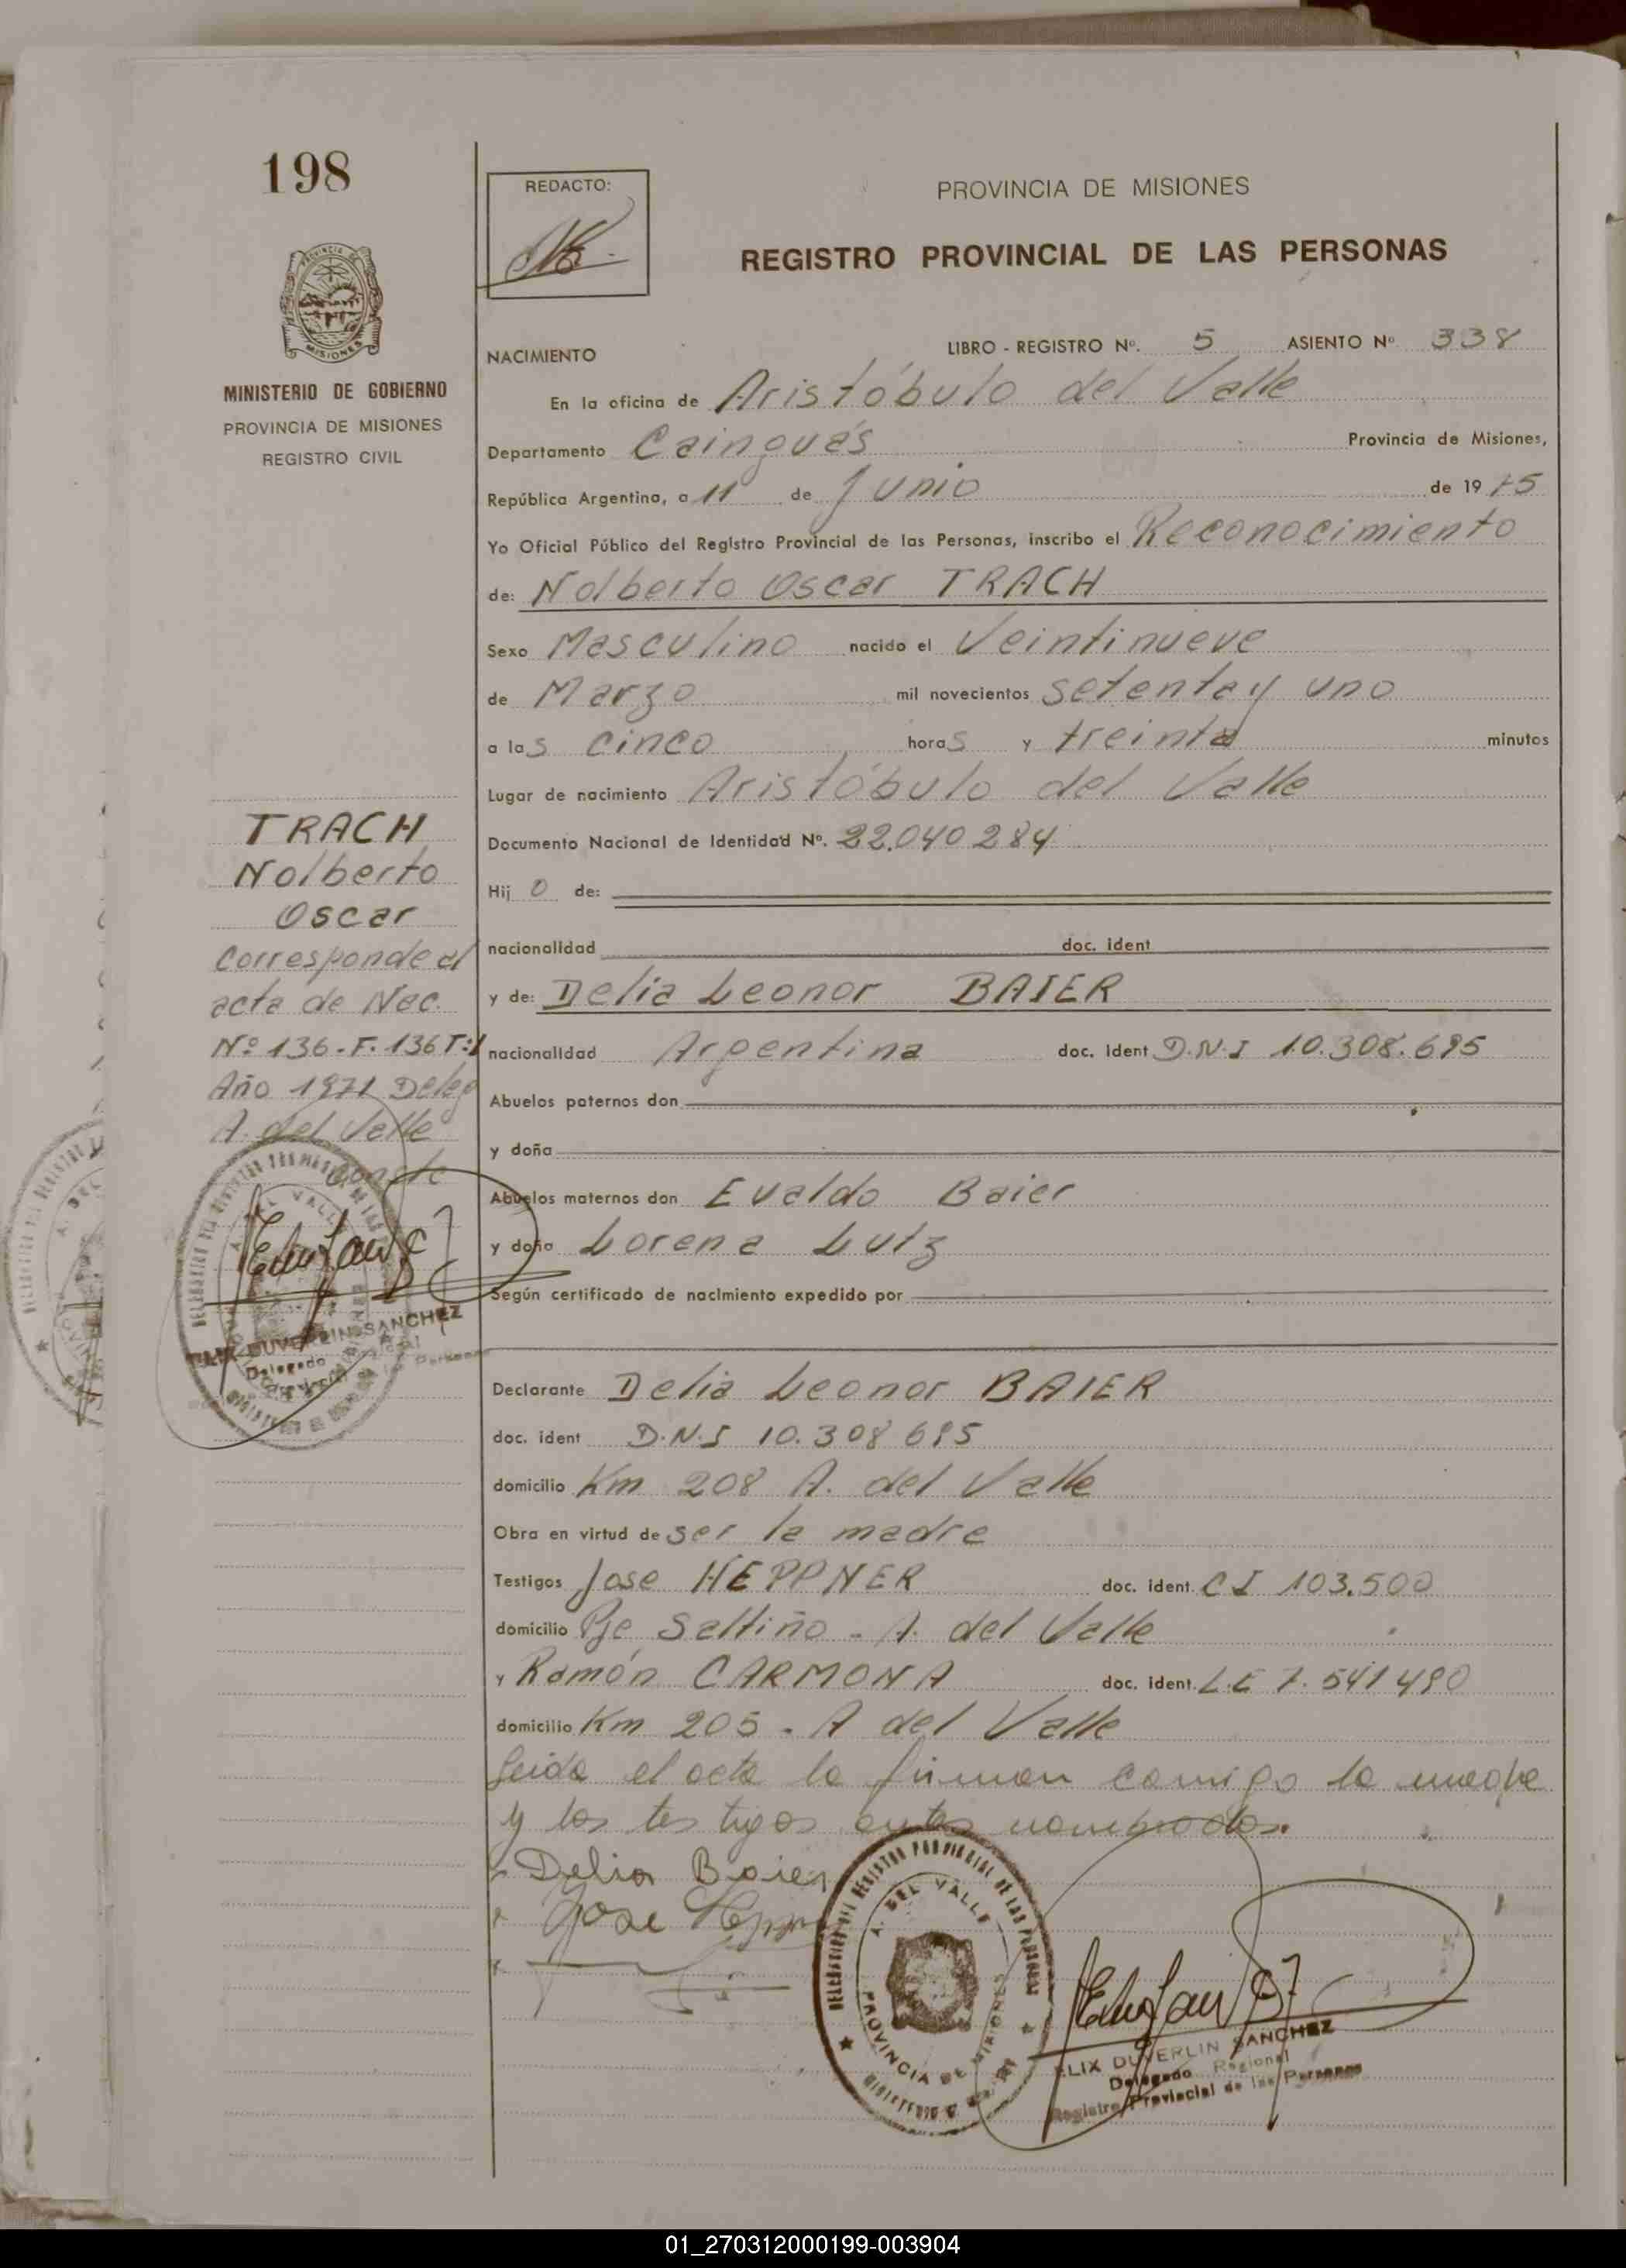 198
REDACTO:
PROVINCIA DE MISIONES
REGISTRO PROVINCIAL DE LAS PERSONAS
MISIONES
MINISTERIO DE GOBIERNO
PROVINCIA DE MISIONES
REGISTRO CIVIL
NACIMIENTO
LIBRO - REGISTRO Nº. 5 ASIENTO Nº 338
En la oficina de Aristóbulo del Valle
Departamento Cainguás Provincia de Misiones,
República Argentina, a 11 de Junio de 1975
Yo Oficial Público del Registro Provincial de las Personas, inscribo el Reconocimiento
de: Nolberto Oscar TRACH
Sexo Masculino nacido el Veintinueve
de Marzo mil novecientos setenta y uno
a las cinco horas y treinta minutos
Lugar de nacimiento Aristóbulo del Valle
Documento Nacional de Identidad Nº. 22.040284
Hijo de:
nacionalidad doc. ident
y de: Delia Leonor BAIER
nacionalidad Argentina doc. ident D.N.I 10.308.695
Abuelos paternos don
y doña
Abuelos maternos don Evaldo Baier
y doña Lorena Lutz
Según certificado de nacimiento expedido por
TRACH
Nolberto
Oscar
Corresponde al
acta de Nac.
Nº 136-F.136 T:1
Año 1971 Deleg
A. del Valle
Conste
DUVERLIN SANCHEZ
Delegado
Declarante Delia Leonor BAIER
doc. ident D.N.I 10.308695
domicilio Km 208 A. del Valle
Obra en virtud de ser la madre
Testigos Jose HEPPNER doc. ident. CI 103.500
domicilio Pje Saltiño - A. del Valle
y Ramón CARMONA doc. ident. L.E 7.541490
domicilio Km 205 - A del Valle
Leida el acta la firman conmigo la madre
y los testigos antes nombrados.
Delia Baier
Jose
DELEGACION DEL REGISTRO PROVINCIAL DE LAS PERSONAS
A. DEL VALLE
PROVINCIA DE MISIONES
ELIX DUVERLIN SANCHEZ
Delegado Regional
Registro Provincial de las Personas
01_270312000199-003904